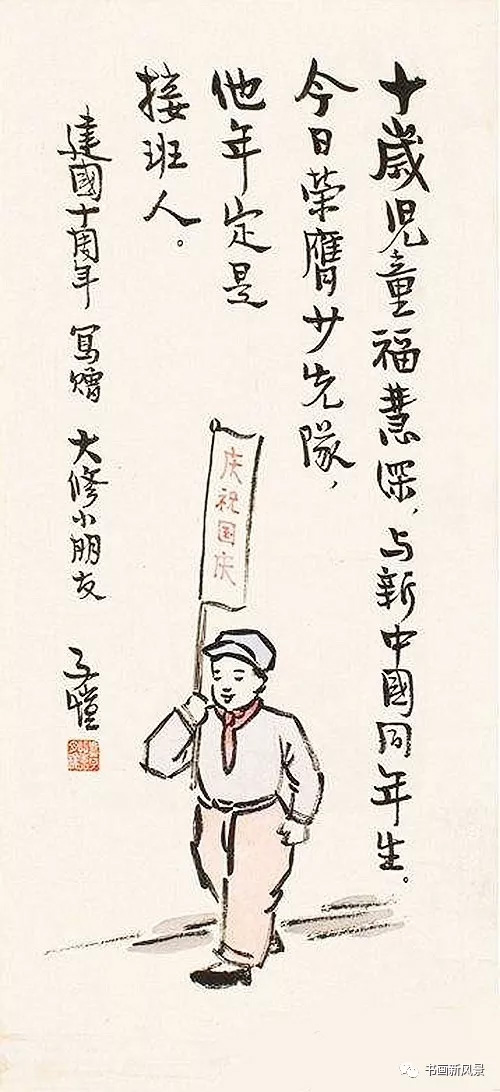 十歲児童福慧深，与新中國同年生。
今日荣膺少先隊，
他年定是
接班人。
建國十周年 写贈 大修小朋友 子愷
庆祝国庆
书画新风景